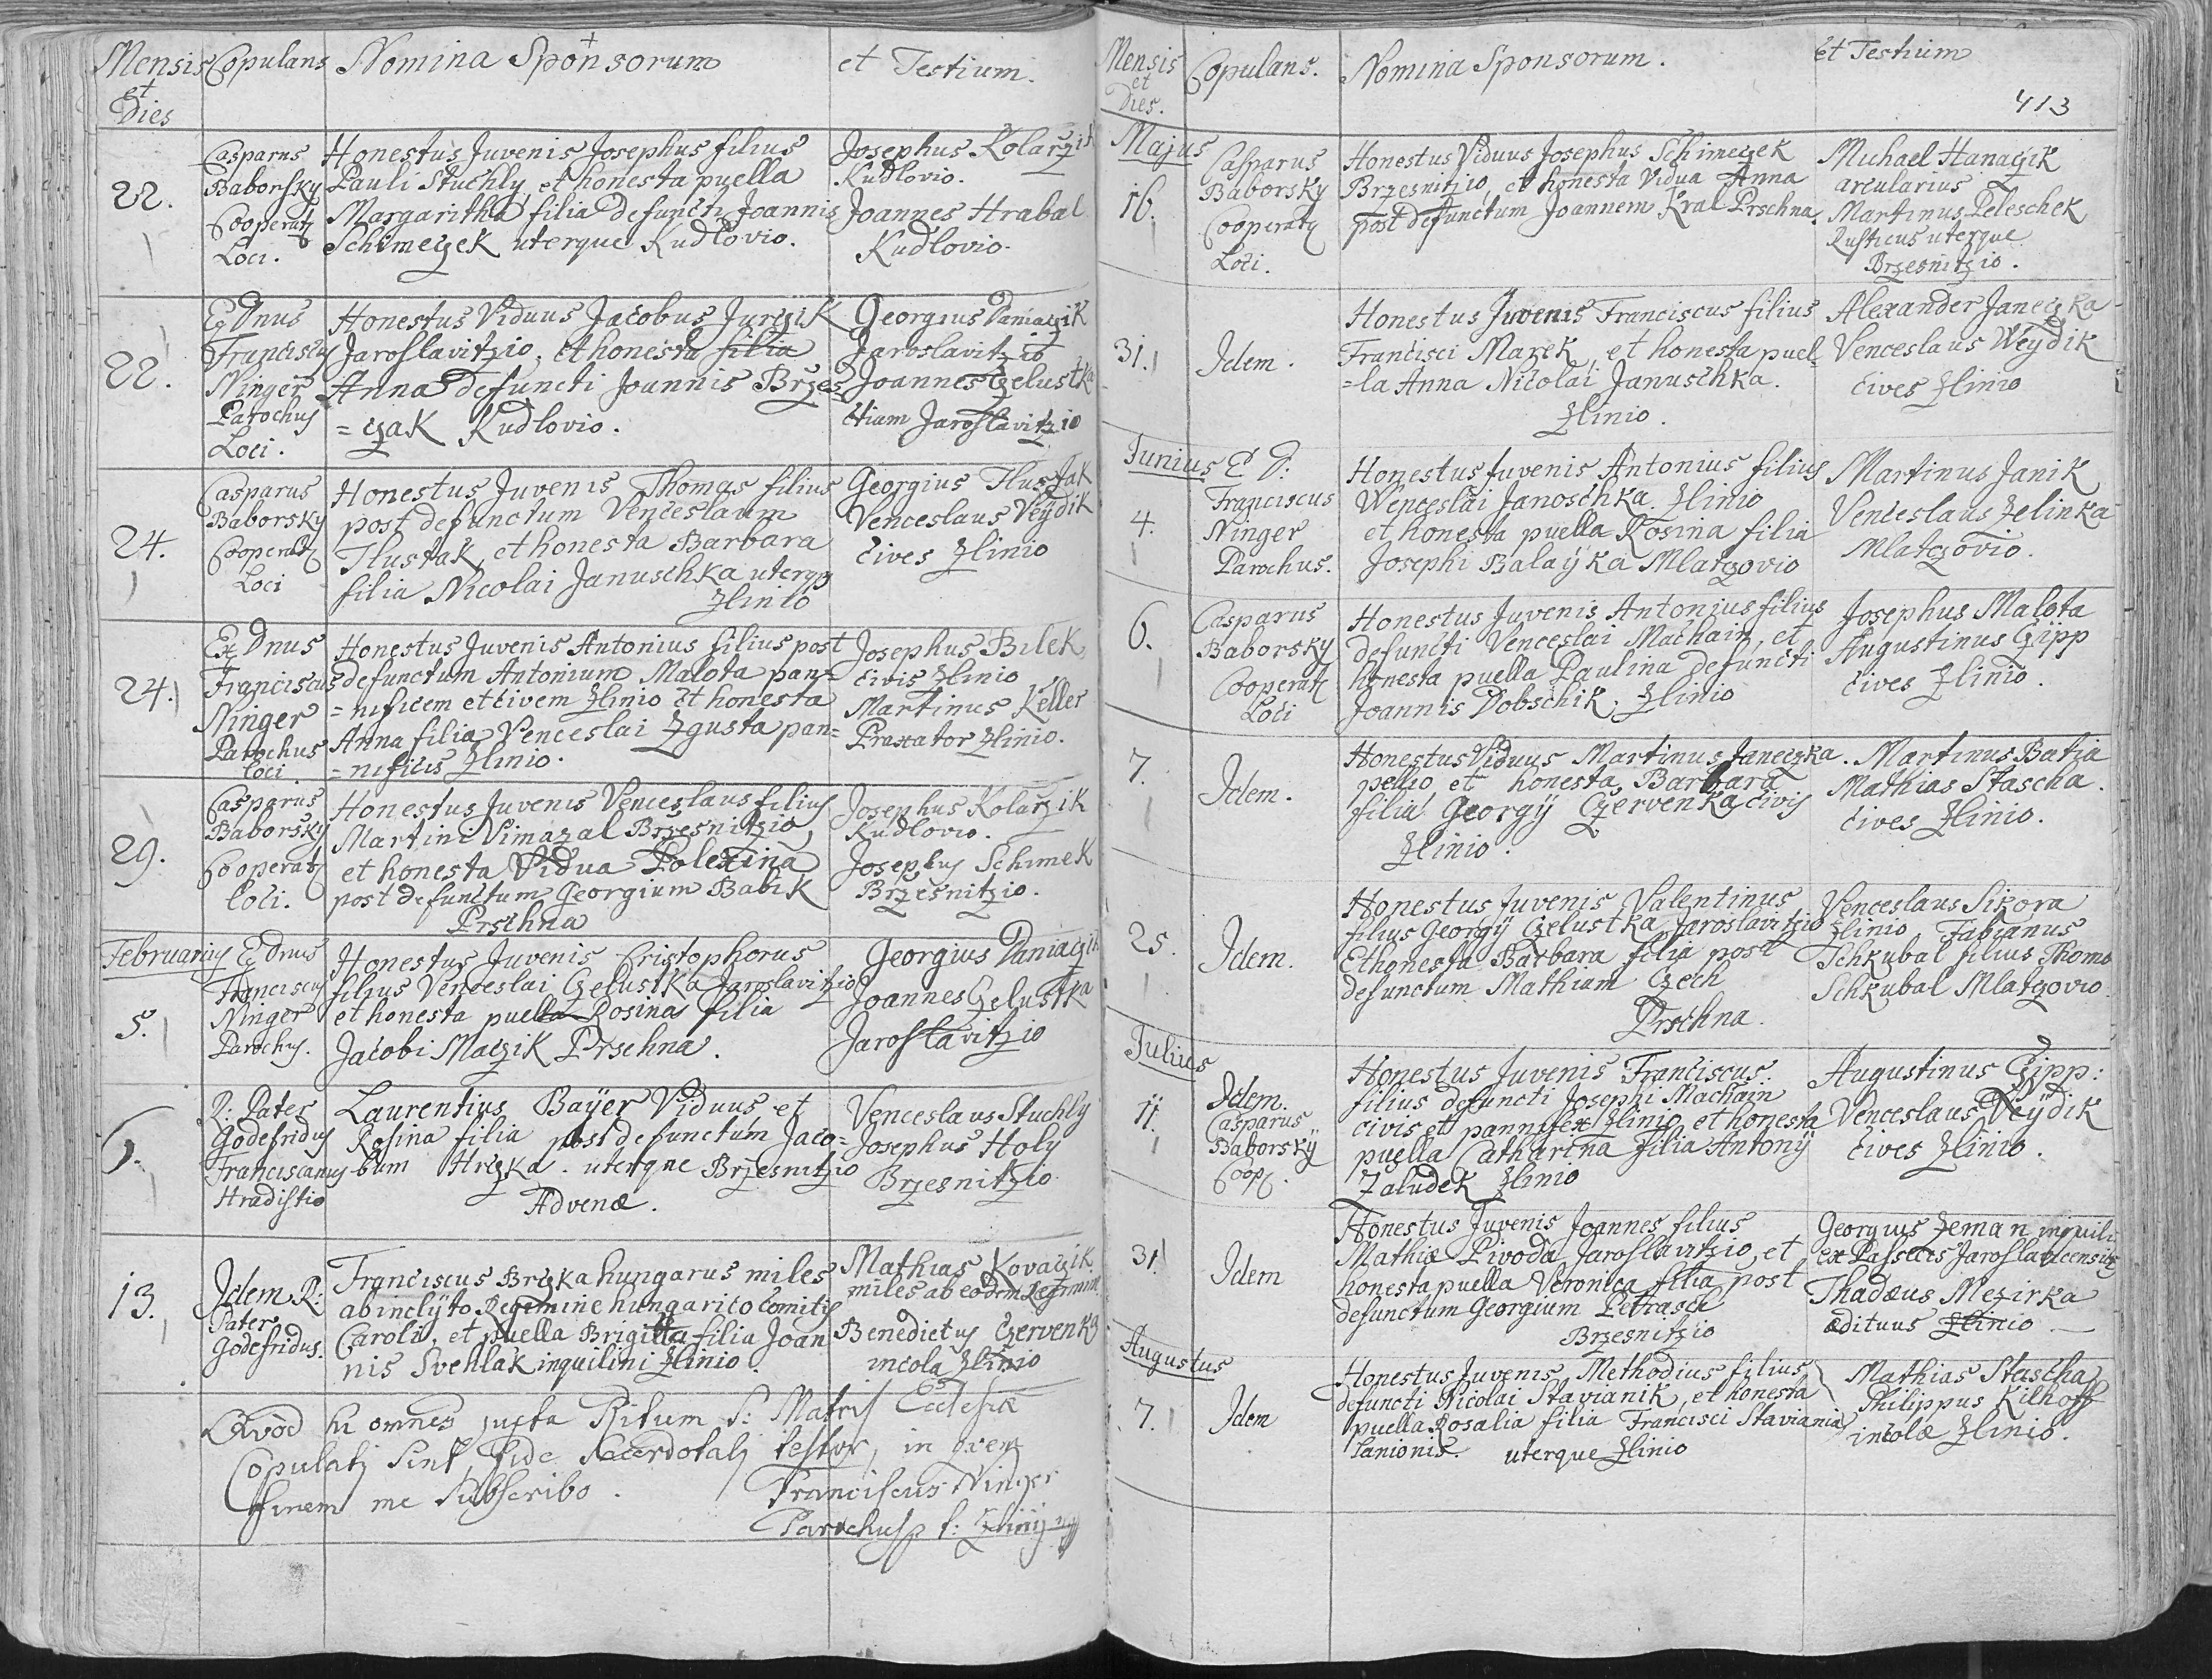 Mensis et Dies
Copulans
Nomina Sponsorum
et Testium.
22.
Casparus
Baborsky
Cooperat
Loci.
Honestus Juvenis Josephus filius
Pauli Stuchly, et honesta puella
Margaritha filia defuncti Joannis
Schimeczek uterque Kudlovio.
Josephus Kolarzik
Kudlovio.
Joannes Hrabal
Kudlovio.
22.
Dnus
Franciscus
Ninger
Parochus
Loci.
Honestus Viduus Jacobus Jurczik
Jaroslavitzio, et honesta filia
Anna defuncti Joannis Brzes
=czak Kudlovio.
Georgius Daniaczik
Jaroslavitzio
Joannes Czelustka
etiam Jaroslavitzio
24.
Casparus
Baborsky
Cooperat
Loci
Honestus Juvenis Thomas filius
post defunctum Venceslaum
Tlustak, et honesta Barbara
filia Nicolai Januschka uterq
Zlinio
Georgius Tlustak
Venceslaus Veydik
cives Zlinio
24.
Dnus
Franciscus
Ninger
Parochus
loci
Honestus Juvenis Antonius filius post
defunctum Antonium Malota pan=
=nificem et civem Zlinio et honesta
Anna filia Venceslai Zgusta pan=
=nificis Zlinio.
Josephus Bilek
civis Zlinio
Martinus Keller
Praxator Zlinio.
29.
Casparus
Baborsky
Cooperat
loci.
Honestus Juvenis Venceslaus filius
Martini Vimazal Brzesnitzio,
et honesta Vidua Polexina
post defunctum Georgium Babik
Prschna
Josephus Kolarzik
Kudlovio.
Josephus Schimek
Brzesnitzio.
Februarius
5.
Dnus
Franciscus
Ninger
Parochus.
Honestus Juvenis Cristophorus
filius Venceslai Czelustka Jaroslavitzio
et honesta puella Rosina filia
Jacobi Maczik Prschna.
Georgius Daniaczik
Joannes Czelustka
Jaroslavitzio
R: Pater
Godefridus
Franciscanus
Hradistio
Laurentius Baÿer Viduus, et
Rosina filia post defunctum Jaco=
bum Hrczka. uterque Brzesnitzio
Advenæ.
Venceslaus Stuchly
Josephus Holy
Brzesnitzio.
13.
Idem R:
Pater
Godefridus.
Franciscus Brczka hungarus miles
ab inclÿto Regimine hungarico Comitis
Caroli, et puella Brigitta filia Joan
nis Svehlak inquilini Zlinio.
Mathias Kovaczik
miles ab eodem Regimine
Benedictus Czervenka
incola Zlinio
Qvod hi omnes juxta Ritum S: Matris Ecclesiæ
Copulati sint, fide Sacerdotali testor, in qvem
finem me subscribo.
Franciscus Ninger
Parochus
Mensis et Dies.
Copulans.
Nomina Sponsorum.
et Testium
413
Majus
16.
Casparus
Baborsky
Cooperat
Loci.
Honestus Viduus Josephus Schimeczek
Brzesnitzio, et honesta Vidua Anna
post defunctum Joannem Kral Prschna.
Michael Hanaczik
arcularius
Martinus Peleschek
Rusticus uterque
Brzesnitzio.
31.
Idem.
Honestus Juvenis Franciscus filius
Francisci Mazek, et honesta puel=
=la Anna Nicolai Januschka.
Zlinio.
Alexander Janeczka
Venceslaus Weÿdik
cives Zlinio
Junius
4.
Franciscus
Ninger
Parochus.
Honestus Juvenis Antonius filius
Wenceslai Janoschka. Zlinio
et honesta puella Rosina filia
Josephi Balaÿka Mlatzovio
Martinus Janik
Venceslaus Zelinka
Mlatzovio.
6.
Casparus
Baborsky
Cooperat
Loci
Honestus Juvenis Antonius filius
defuncti Venceslai Machain, et
honesta puella Paulina defuncti
Joannis Dobschik. Zlinio
Josephus Malota
Augustinus Czipp
cives Zlinio.
7.
Idem.
Honestus Viduus Martinus Janeczka.
pellio, et honesta Barbara
filia Georgÿ Czervenka civis
Zlinio.
Martinus Batia
Mathias Stascha.
cives Zlinio.
25.
Idem.
Honestus Juvenis Valentinus
filius Georgÿ Czelustka Jaroslavitzio
Et honesta Barbara filia post
defunctum Mathiam Czech
Prschna.
Venceslaus Sikora
Zlinio, Fabianus
Schkubal filius Thomæ
Schkubal Mlatzovio
Julius
11.
Idem.
Casparus
Baborskÿ
Coop.
Honestus Juvenis Franciscus
filius defuncti Josephi Machain
civis et pannifex Zlinio, et honesta
puella Catharina filia Antonÿ
Zaludek Zlinio
Augustinus Czipp:
Venceslaus Veÿdik
cives Zlinio.
31.
Idem
Honestus Juvenis Joannes filius
Mathiæ Pivoda Jaroslavitzio, et
honesta puella Veronica filia post
defunctum Georgium Petrasch
Brzesnitzio
Georgius Zeman inquili
ex Passecis Jaroslavicensib
Thadæus Mezirka
ædituus Zlinio
Augustus
7.
Idem
Honestus Juvenis Methodius filius
defuncti Nicolai Stavianik, et honesta
puella Rosalia filia Francisci Staviania
Lanionis. uterque Zlinio
Mathias Stascha
Philippus Kilhoff
incolæ Zlinio.